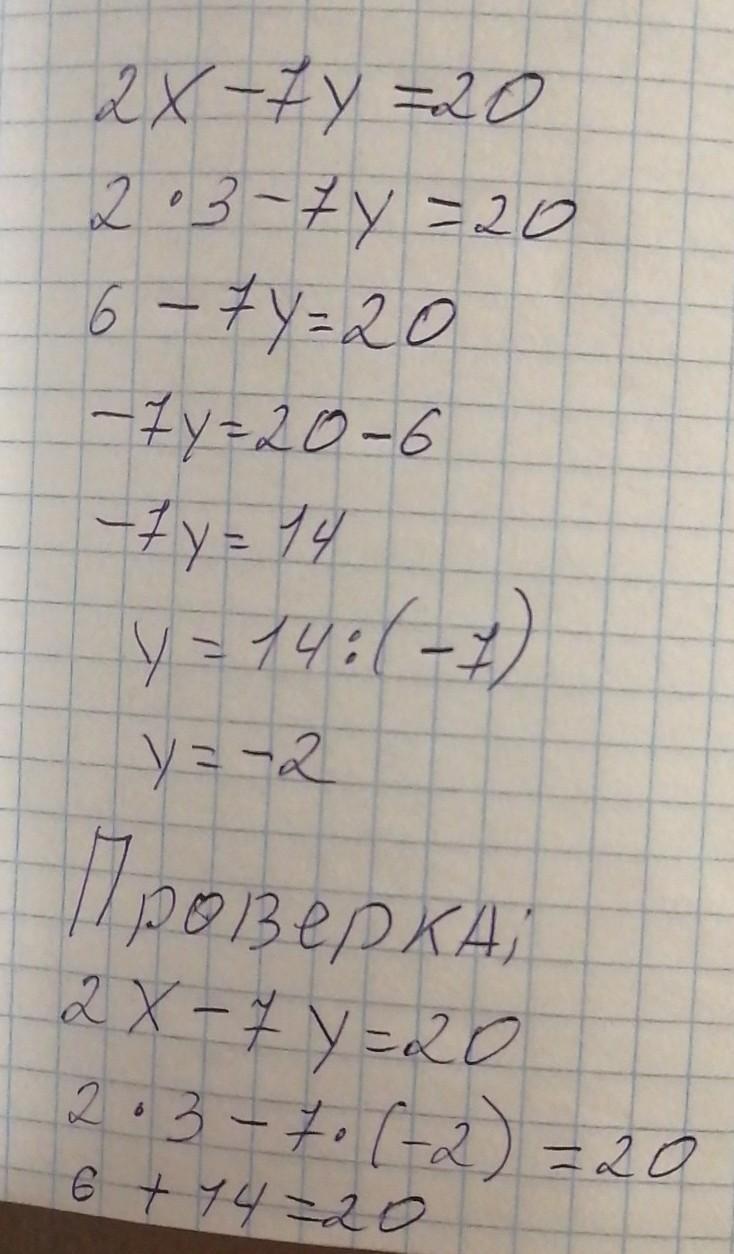 2x - 7y = 20
2 · 3 - 7y = 20
6 - 7y = 20
-7y = 20 - 6
-7y = 14
y = 14 : (-7)
y = -2
Проверка;
2x - 7y = 20
2 · 3 - 7 · (-2) = 20
6 + 14 = 20